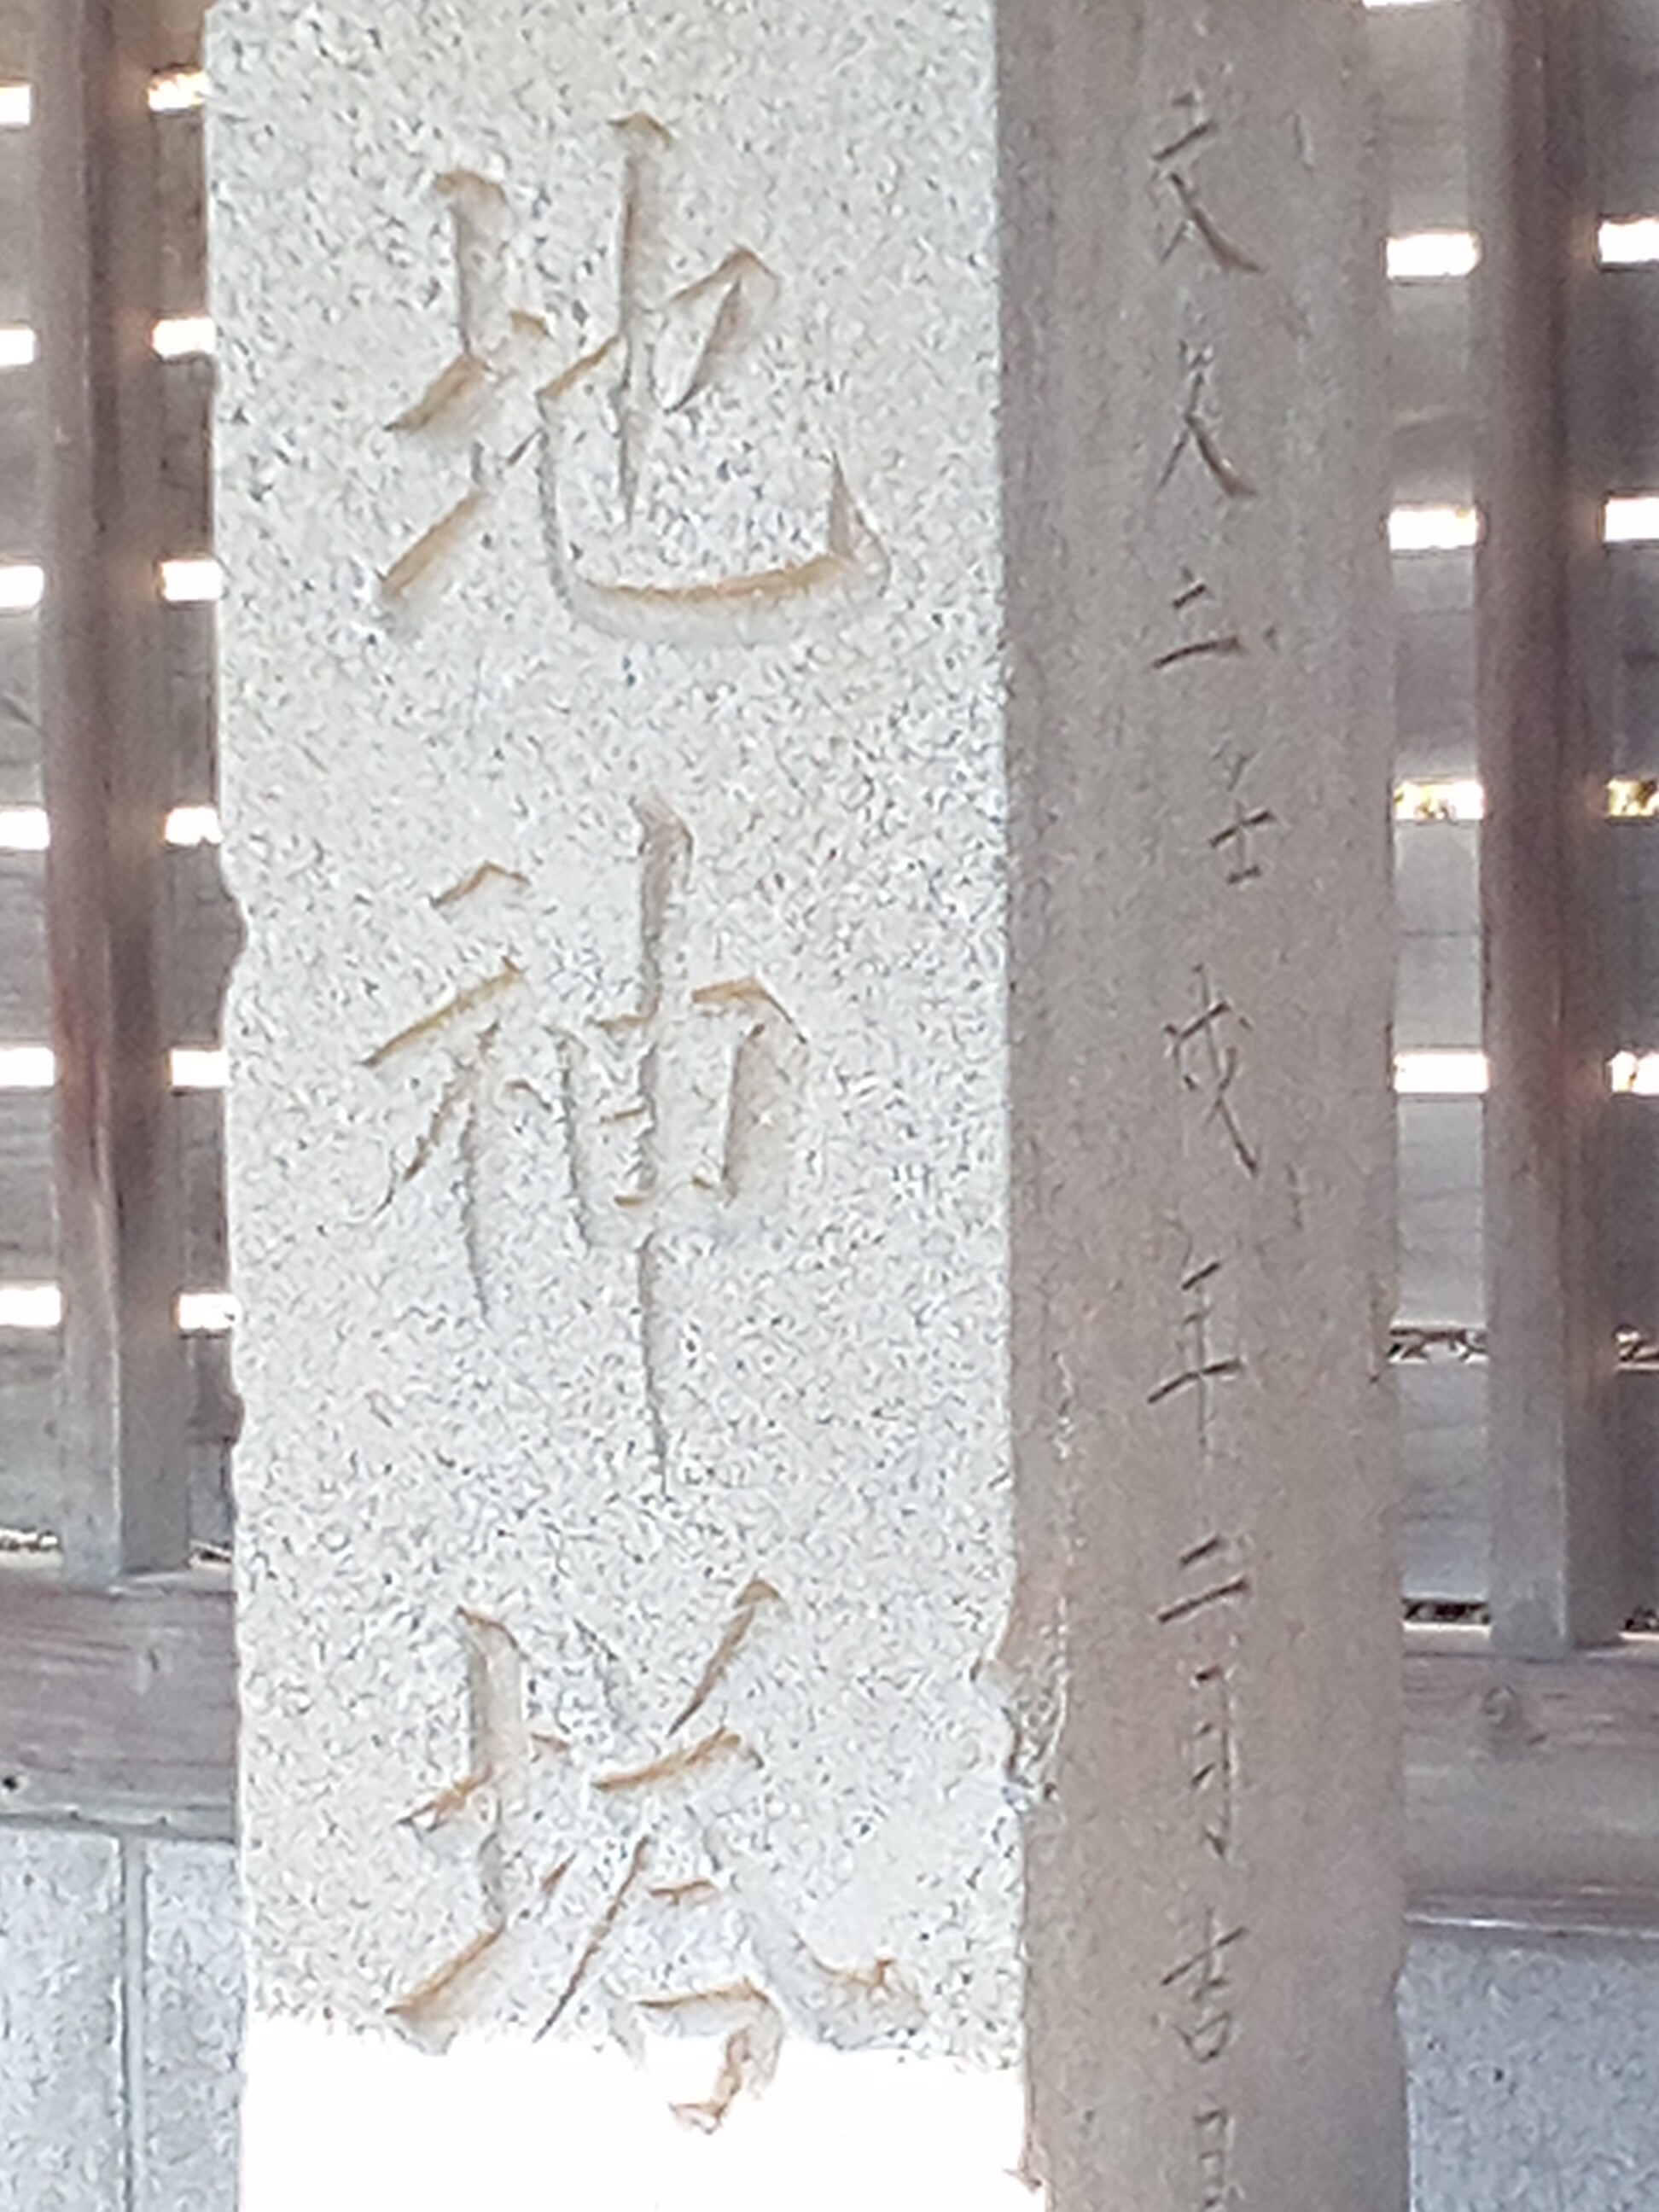 地神塔
文久二壬戌年二月吉日